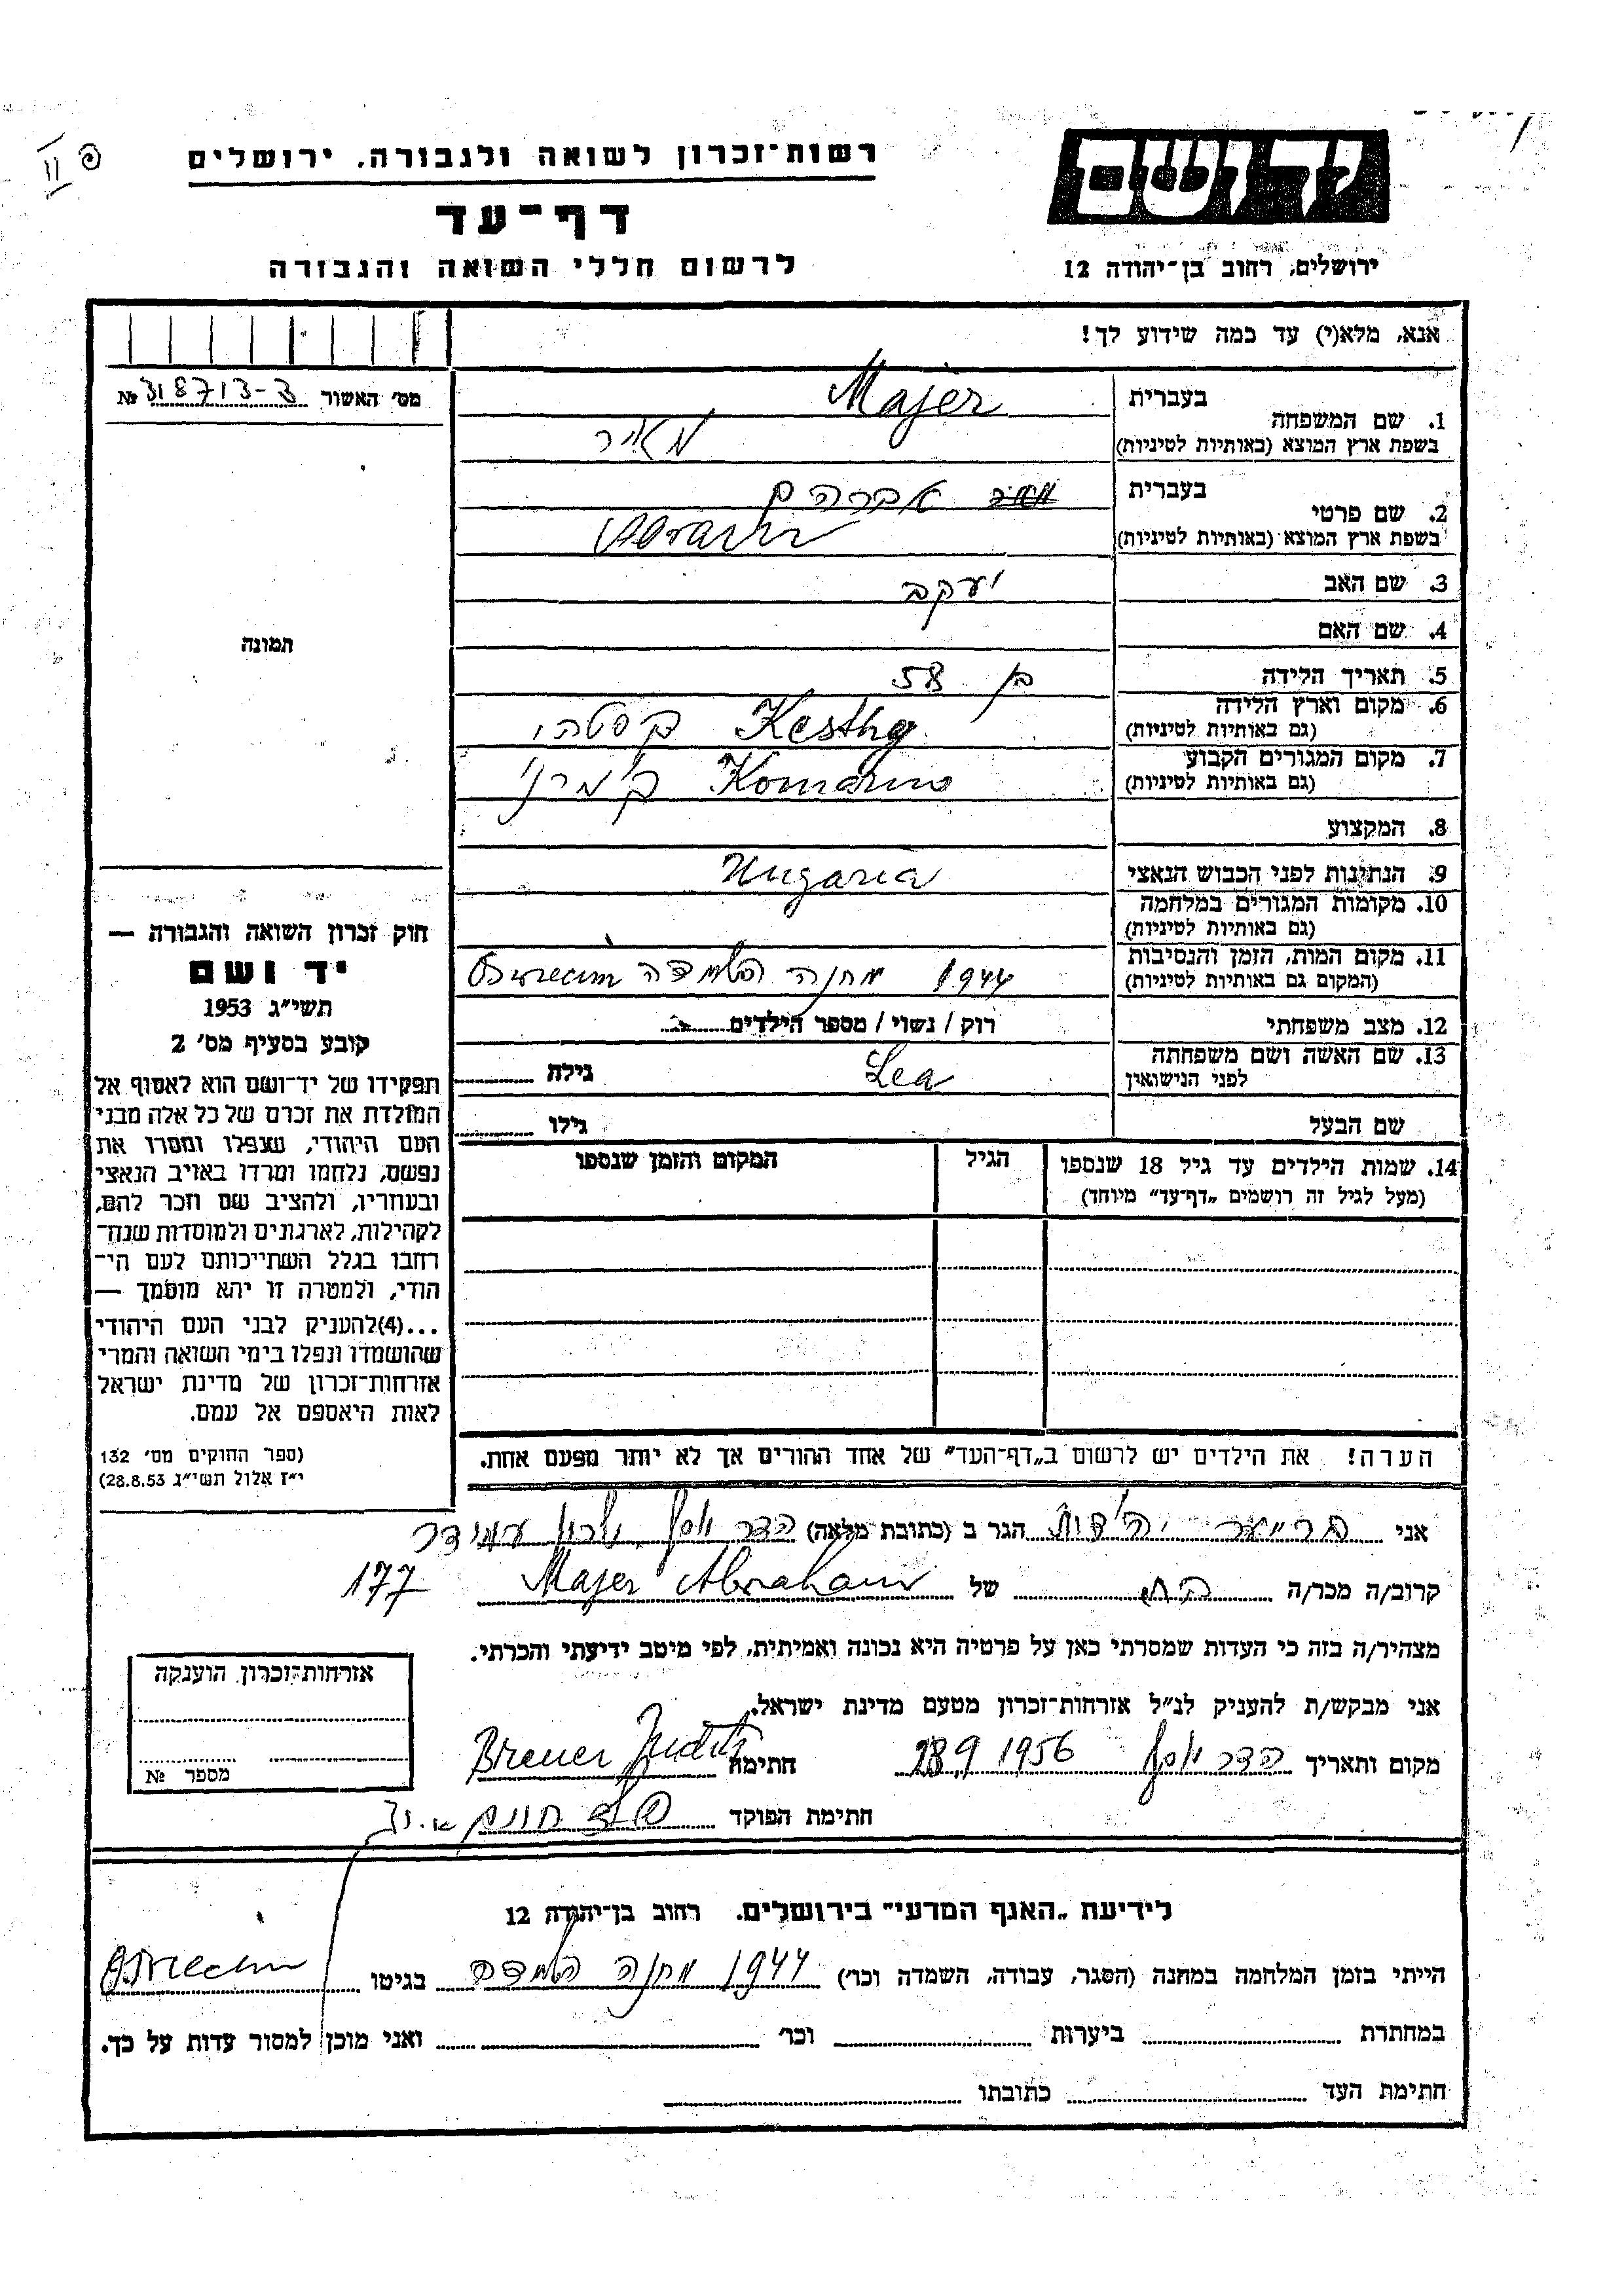 רשות־זכרון לשואה ולגבורה, ירושלים
דף־עד
לרשום חללי השואה והגבורה
יד ושם
ירושלים, רחוב בן־יהודה 12
אנא, מלא(י) עד כמה שידוע לך!
מס׳ האשור 318713-3 №
תמונה
1. שם המשפחה
בעברית Majer
בשפת ארץ המוצא (באותיות לטיניות) מאיר
2. שם פרטי
בעברית אברהם
בשפת ארץ המוצא (באותיות לטיניות)
3. שם האב יעקב
4. שם האם
5. תאריך הלידה בן 58
6. מקום וארץ הלידה
(גם באותיות לטיניות) Kesthy קסטהי
7. מקום המגורים הקבוע
(גם באותיות לטיניות) Komarno
8. המקצוע
9. הנתינות לפני הכבוש הנאצי Hugaria
10. מקומות המגורים במלחמה
(גם באותיות לטיניות)
11. מקום המות, הזמן והנסיבות
(המקום גם באותיות לטיניות) 1944 מחנה השמדה
12. מצב משפחתי רוק / נשוי / מספר הילדים
13. שם האשה ושם משפחתה
לפני הנישואין Lea גילה
שם הבעל גילו
14. שמות הילדים עד גיל 18 שנספו
(מעל לגיל זה רושמים „דף־עד” מיוחד)
הגיל
המקום והזמן שנספו
הערה! את הילדים יש לרשום ב„דף־העד” של אחד ההורים אך לא יותר מפעם אחת.
חוק זכרון השואה והגבורה —
יד ושם
תשי״ג 1953
קובע בסעיף מס׳ 2
תפקידו של יד־ושם הוא לאסוף אל
המולדת את זכרם של כל אלה מבני
העם היהודי, שנפלו ומסרו את
נפשם, נלחמו ומרדו באויב הנאצי
ובעוזריו, ולהציב שם וזכר להם,
לקהילות, לארגונים ולמוסדות שנח־
רחבו בגלל השתייכותם לעם הי־
הודי, ולמטרה זו יהא מוסמך —
...(4)להעניק לבני העם היהודי
שהושמדו ונפלו בימי השואה והמרי
אזרחות־זכרון של מדינת ישראל
לאות היאספם אל עמם.
(ספר החוקים מס׳ 132
י״ז אלול תשי״ג 28.8.53)
אני ברייער יהודית הגר ב (כתובת מלאה) הדר יוסף, שכון עמידר
177
קרוב/ה מכר/ה בת של Majer Abraham
מצהיר/ה בזה כי העדות שמסרתי כאן על פרטיה היא נכונה ואמיתית, לפי מיטב ידיעתי והכרתי.
אני מבקש/ת להעניק לנ״ל אזרחות־זכרון מטעם מדינת ישראל.
מקום ותאריך הדר יוסף 28.9.1956 חתימה Breuer Judith
חתימת הפוקד
אזרחות־זכרון הוענקה
מספר №
לידיעת „האגף המדעי” בירושלים, רחוב בן־יהודה 12
הייתי בזמן המלחמה במחנה (הסגר, עבודה, השמדה וכו׳) 1944 מחנה השמדה בגיטו
במחתרת ביערות וכו׳ ואני מוכן למסור עדות על כך.
חתימת העד כתובתו